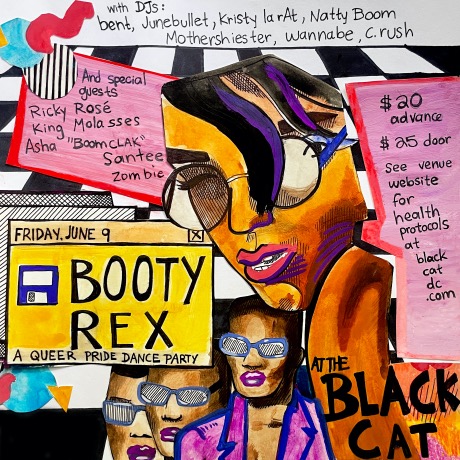 with DJs:
bent, Junebullet, Kristy la rAt, Natty Boom
Mothershiester, wannabe, C.rush
And special
guests
Ricky Rosé
King Molasses
Asha "BoomCLAK"
Santee
zombie
$20
advance
$25 door
see venue
website
for
health
protocols
at
black
cat
dc
.com
FRIDAY, JUNE 9
X
BOOTY
REX
A QUEER PRIDE DANCE PARTY
AT THE
BLACK
CAT